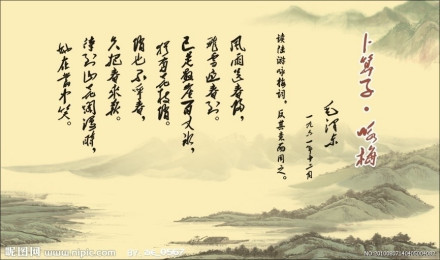 卜算子·咏梅
毛泽东
一九六一年十二月
读陆游咏梅词，反其意而用之。
风雨送春归，
飞雪迎春到。
已是悬崖百丈冰，
犹有花枝俏。
俏也不争春，
只把春来报。
待到山花烂漫时，
她在丛中笑。
昵图网 www.nipic.com